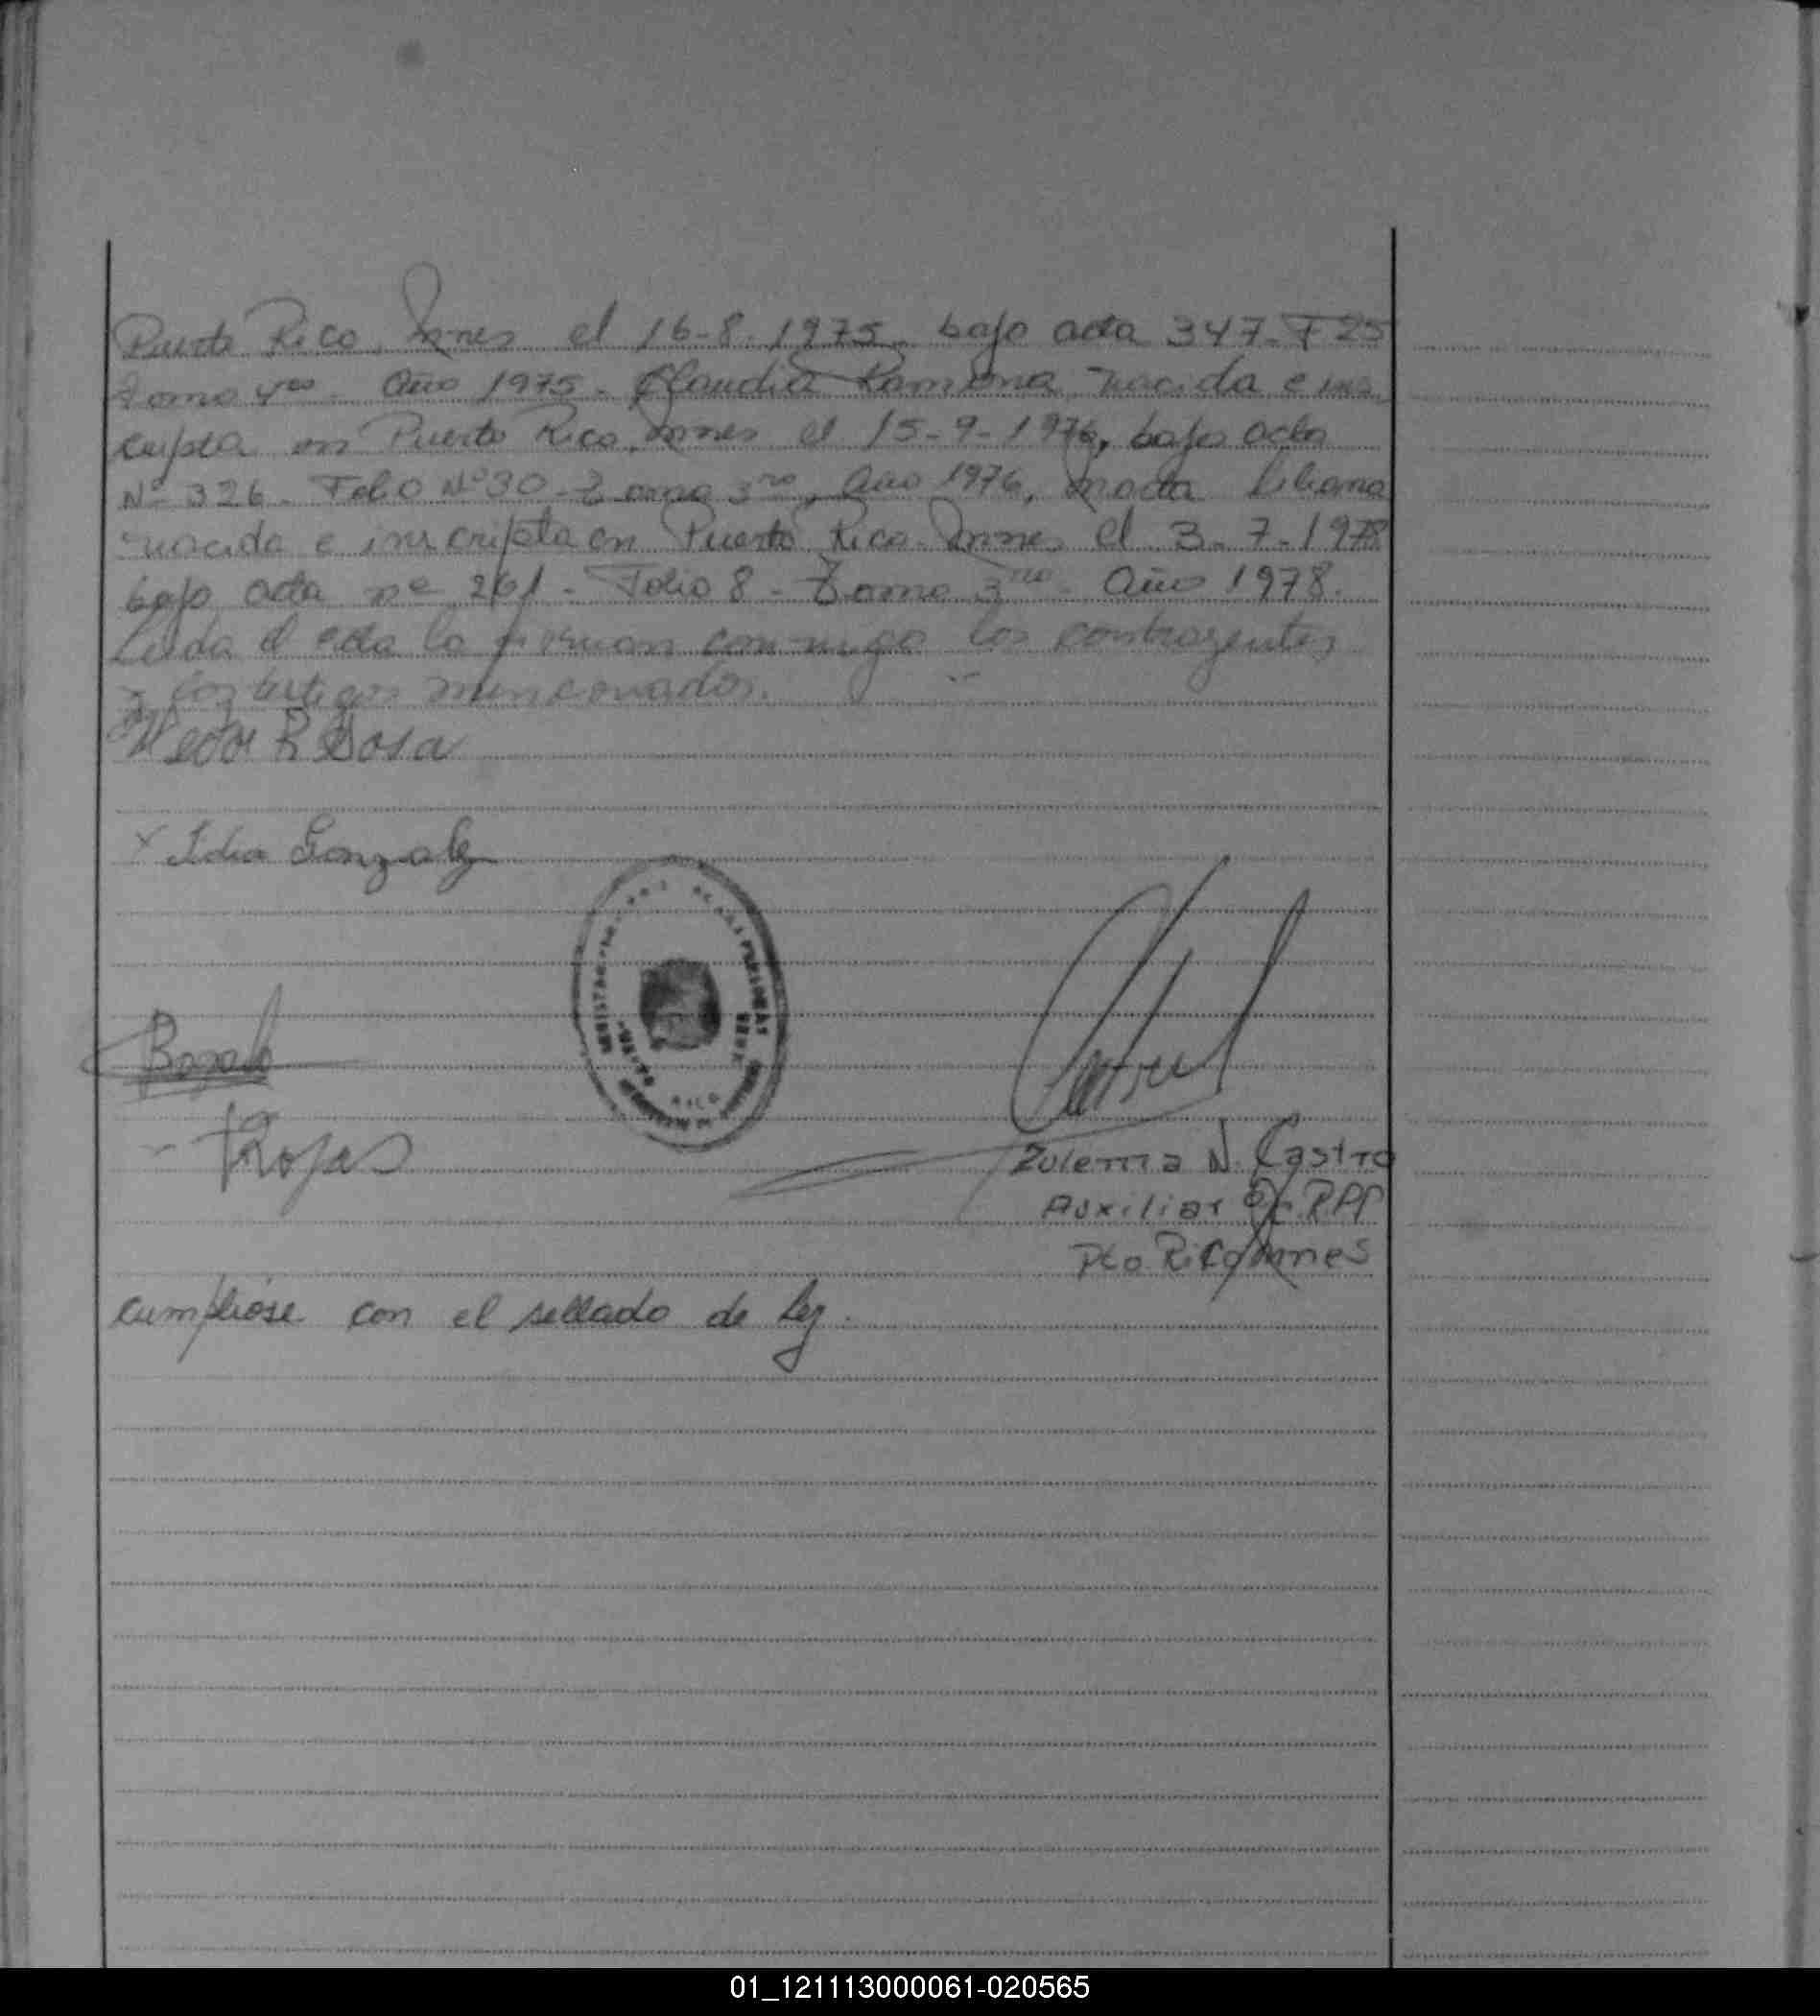 Puerto Rico, Mnes el 16-8-1975. bajo acta 347. F 25
tomo 4to - Año 1975 - Claudia Ramona, nacida e ins
cripta en Puerto Rico, Mnes el 15-9-1976, bajo acta
Nº 326. Folio Nº 30 - Tomo 3ro, Año 1976, Liliana
nacida e inscripta en Puerto Rico. Mnes el 3-7-1978
bajo acta nº 261 - Folio 8 - Tomo 3ro - Año 1978.
Leida el acta la firman conmigo los contrayentes
y los testigos mencionados.
Hector R Sosa
x Idia Gonzalez
Rojas
Zulema N. Castro
Auxiliar Of. RPP
Pto. Rico Mnes
cumpliose con el sellado de Ley.
01_121113000061-020565